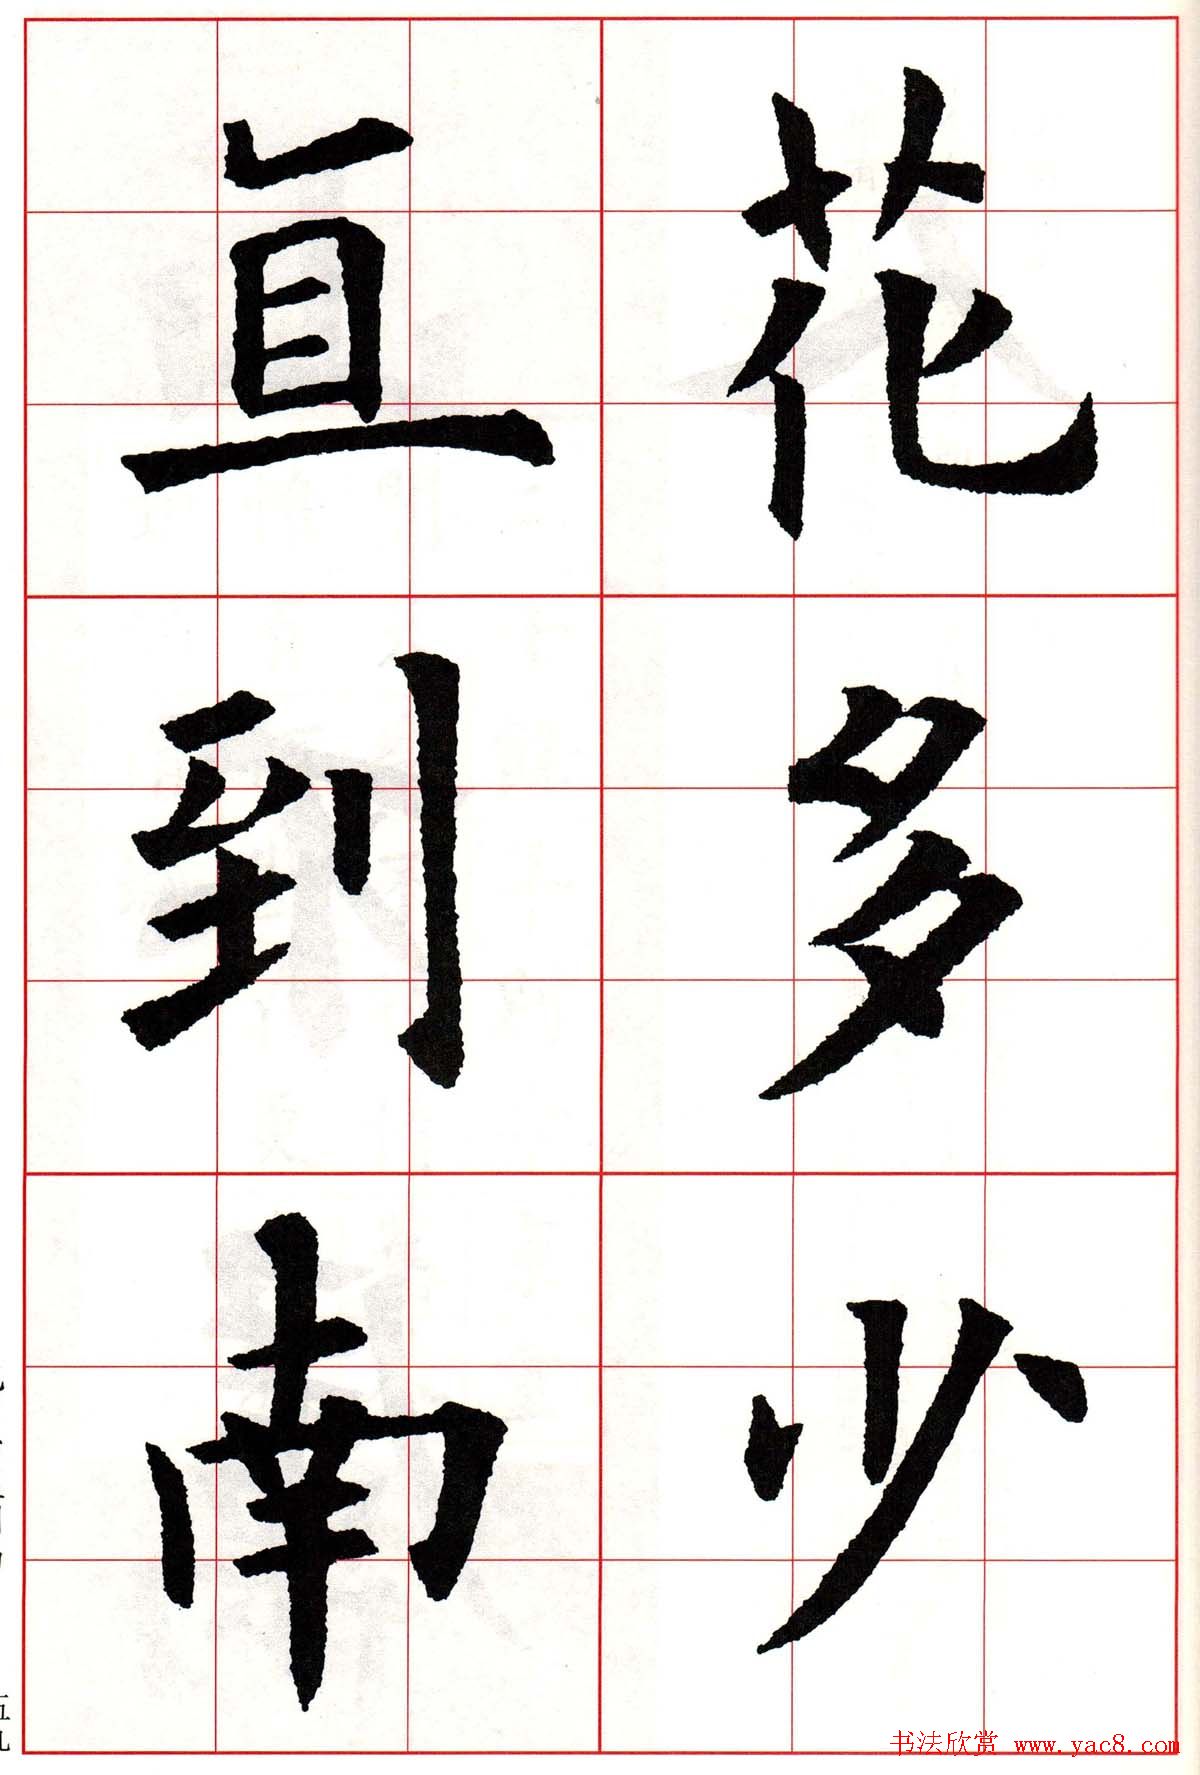 花多少
直到南
书法欣赏 www.yac8.com